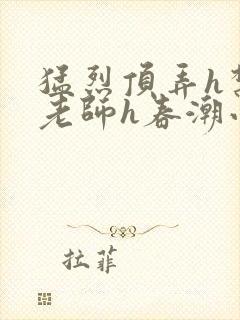 猛烈頂弄h
老師h春潮
拉菲